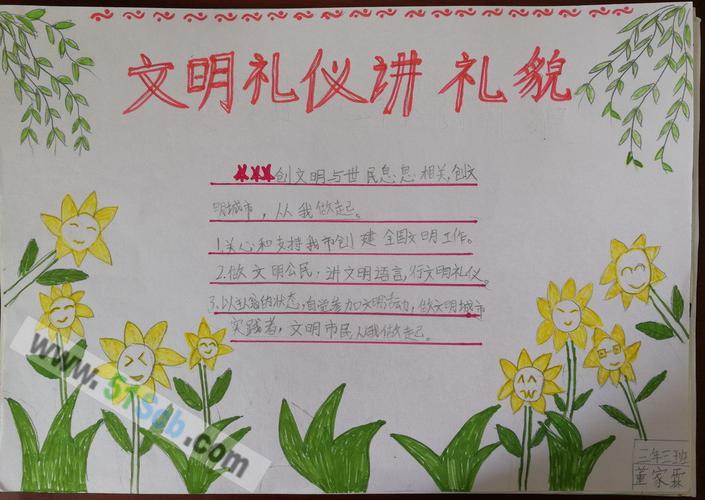 文明礼仪讲礼貌
创文明与世民息息相关,创文
明城市,从我做起。
1.关心和支持我市创建全国文明工作。
2.做文明公民,讲文明语言,行文明礼仪。
3.以积的状态,自觉参加文明活动,做文明城市
实践者,文明市民从我做起。
二年三班
董家霖
www.515cb.com